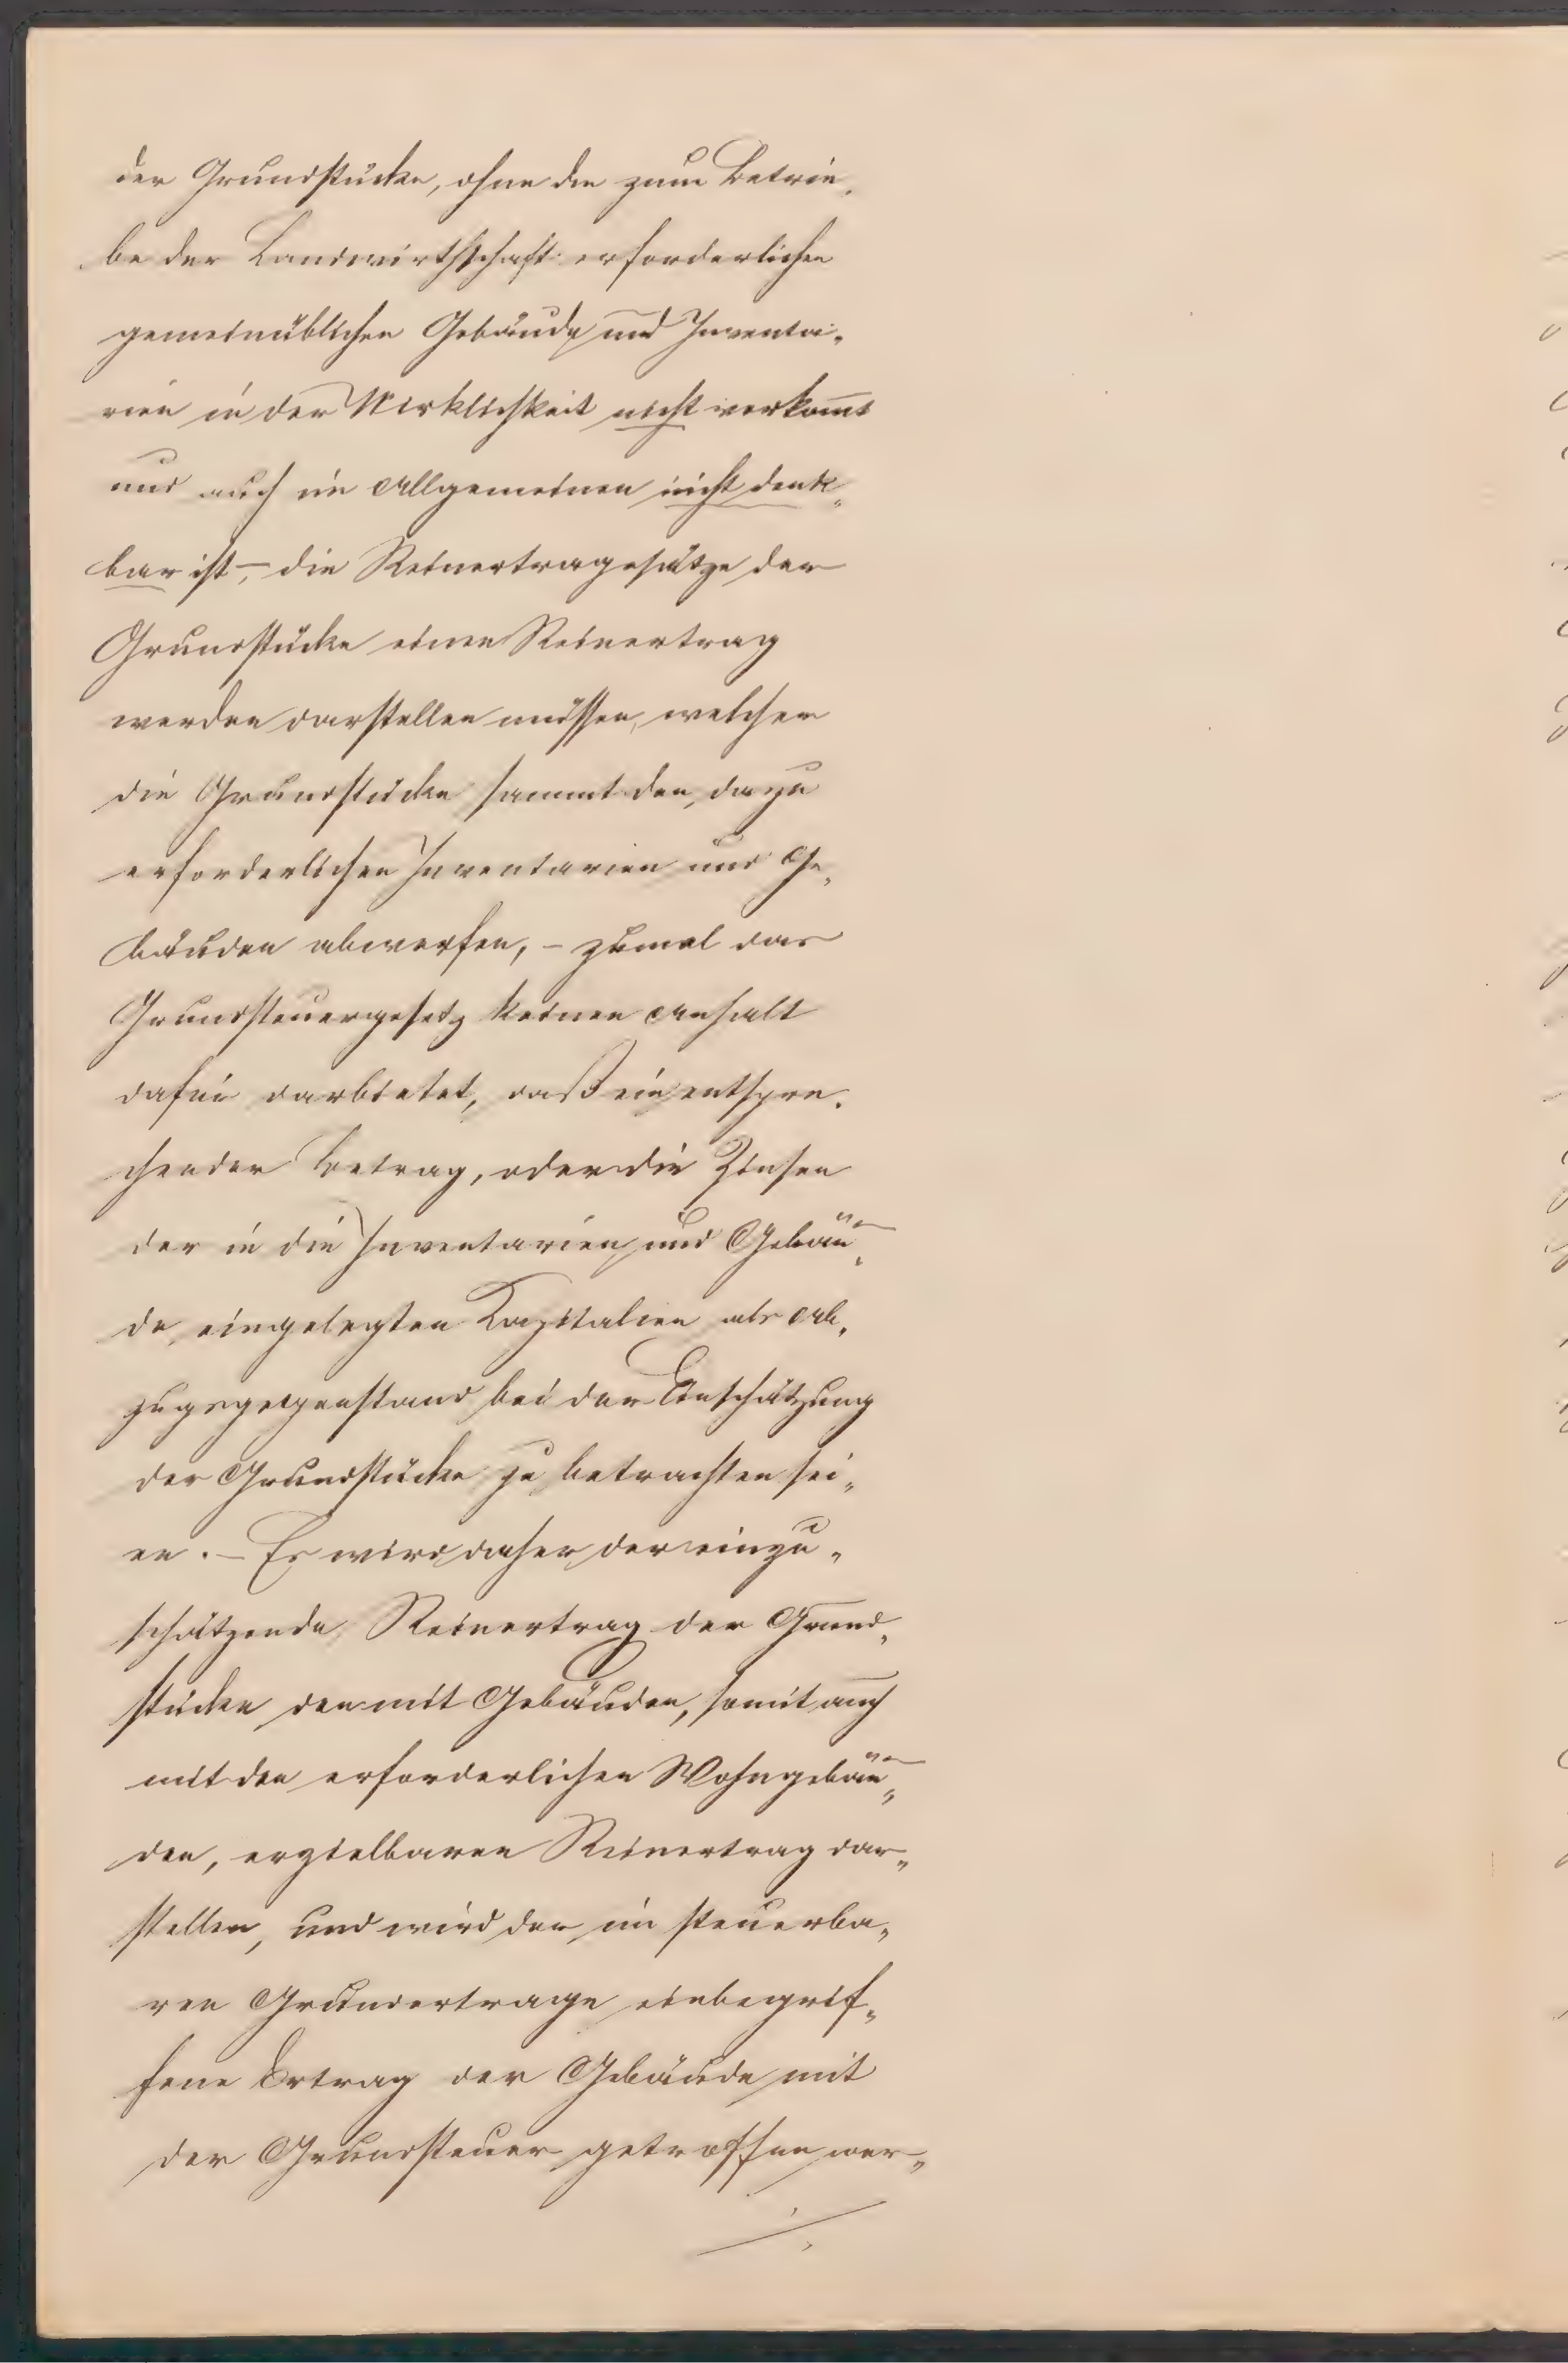 der Grundstücke, ohne die zum Betrie„
be der Landwirthschaft erforderlichen
gemeinüblichen Gebäude und Inventa„
rien in der Wirklichkeit nicht vorkom̅t
und auch im Allgemeinen nicht denk„
bar ist –, die Reinertragssätze der
Grundstücke einen Reinertrag
werden darstellen müssen, welchen
die Grundstücke sammt den, dazu
erforderlichen Inventarien und Ge„
bäuden abwerfen, – zumal das
Grundsteuergesetz keinen Anhalt
dafür darbietet, daß ein entspre„
chender Betrag, oder die Zinsen
der in die Inventarien und Gebäu„
de, eingelegten Kapitalien als Ab„
zugsgegenstand bei der Einschätzung
der Grundstücke zu betrachten sei„
en. – Es wird daher der einzu„
schätzende Reinertrag der Grund„
stücke den mit Gebäuden, somit auch
mit den erforderlichen Wohngebäu„
den, erzielbaren Reinertrag dar„
stellen, und wird der, im steuerba„
ren Grundertrage einbegrif„
fene Ertrag der Gebäude mit
der Grundsteuer getroffen wer„
./.